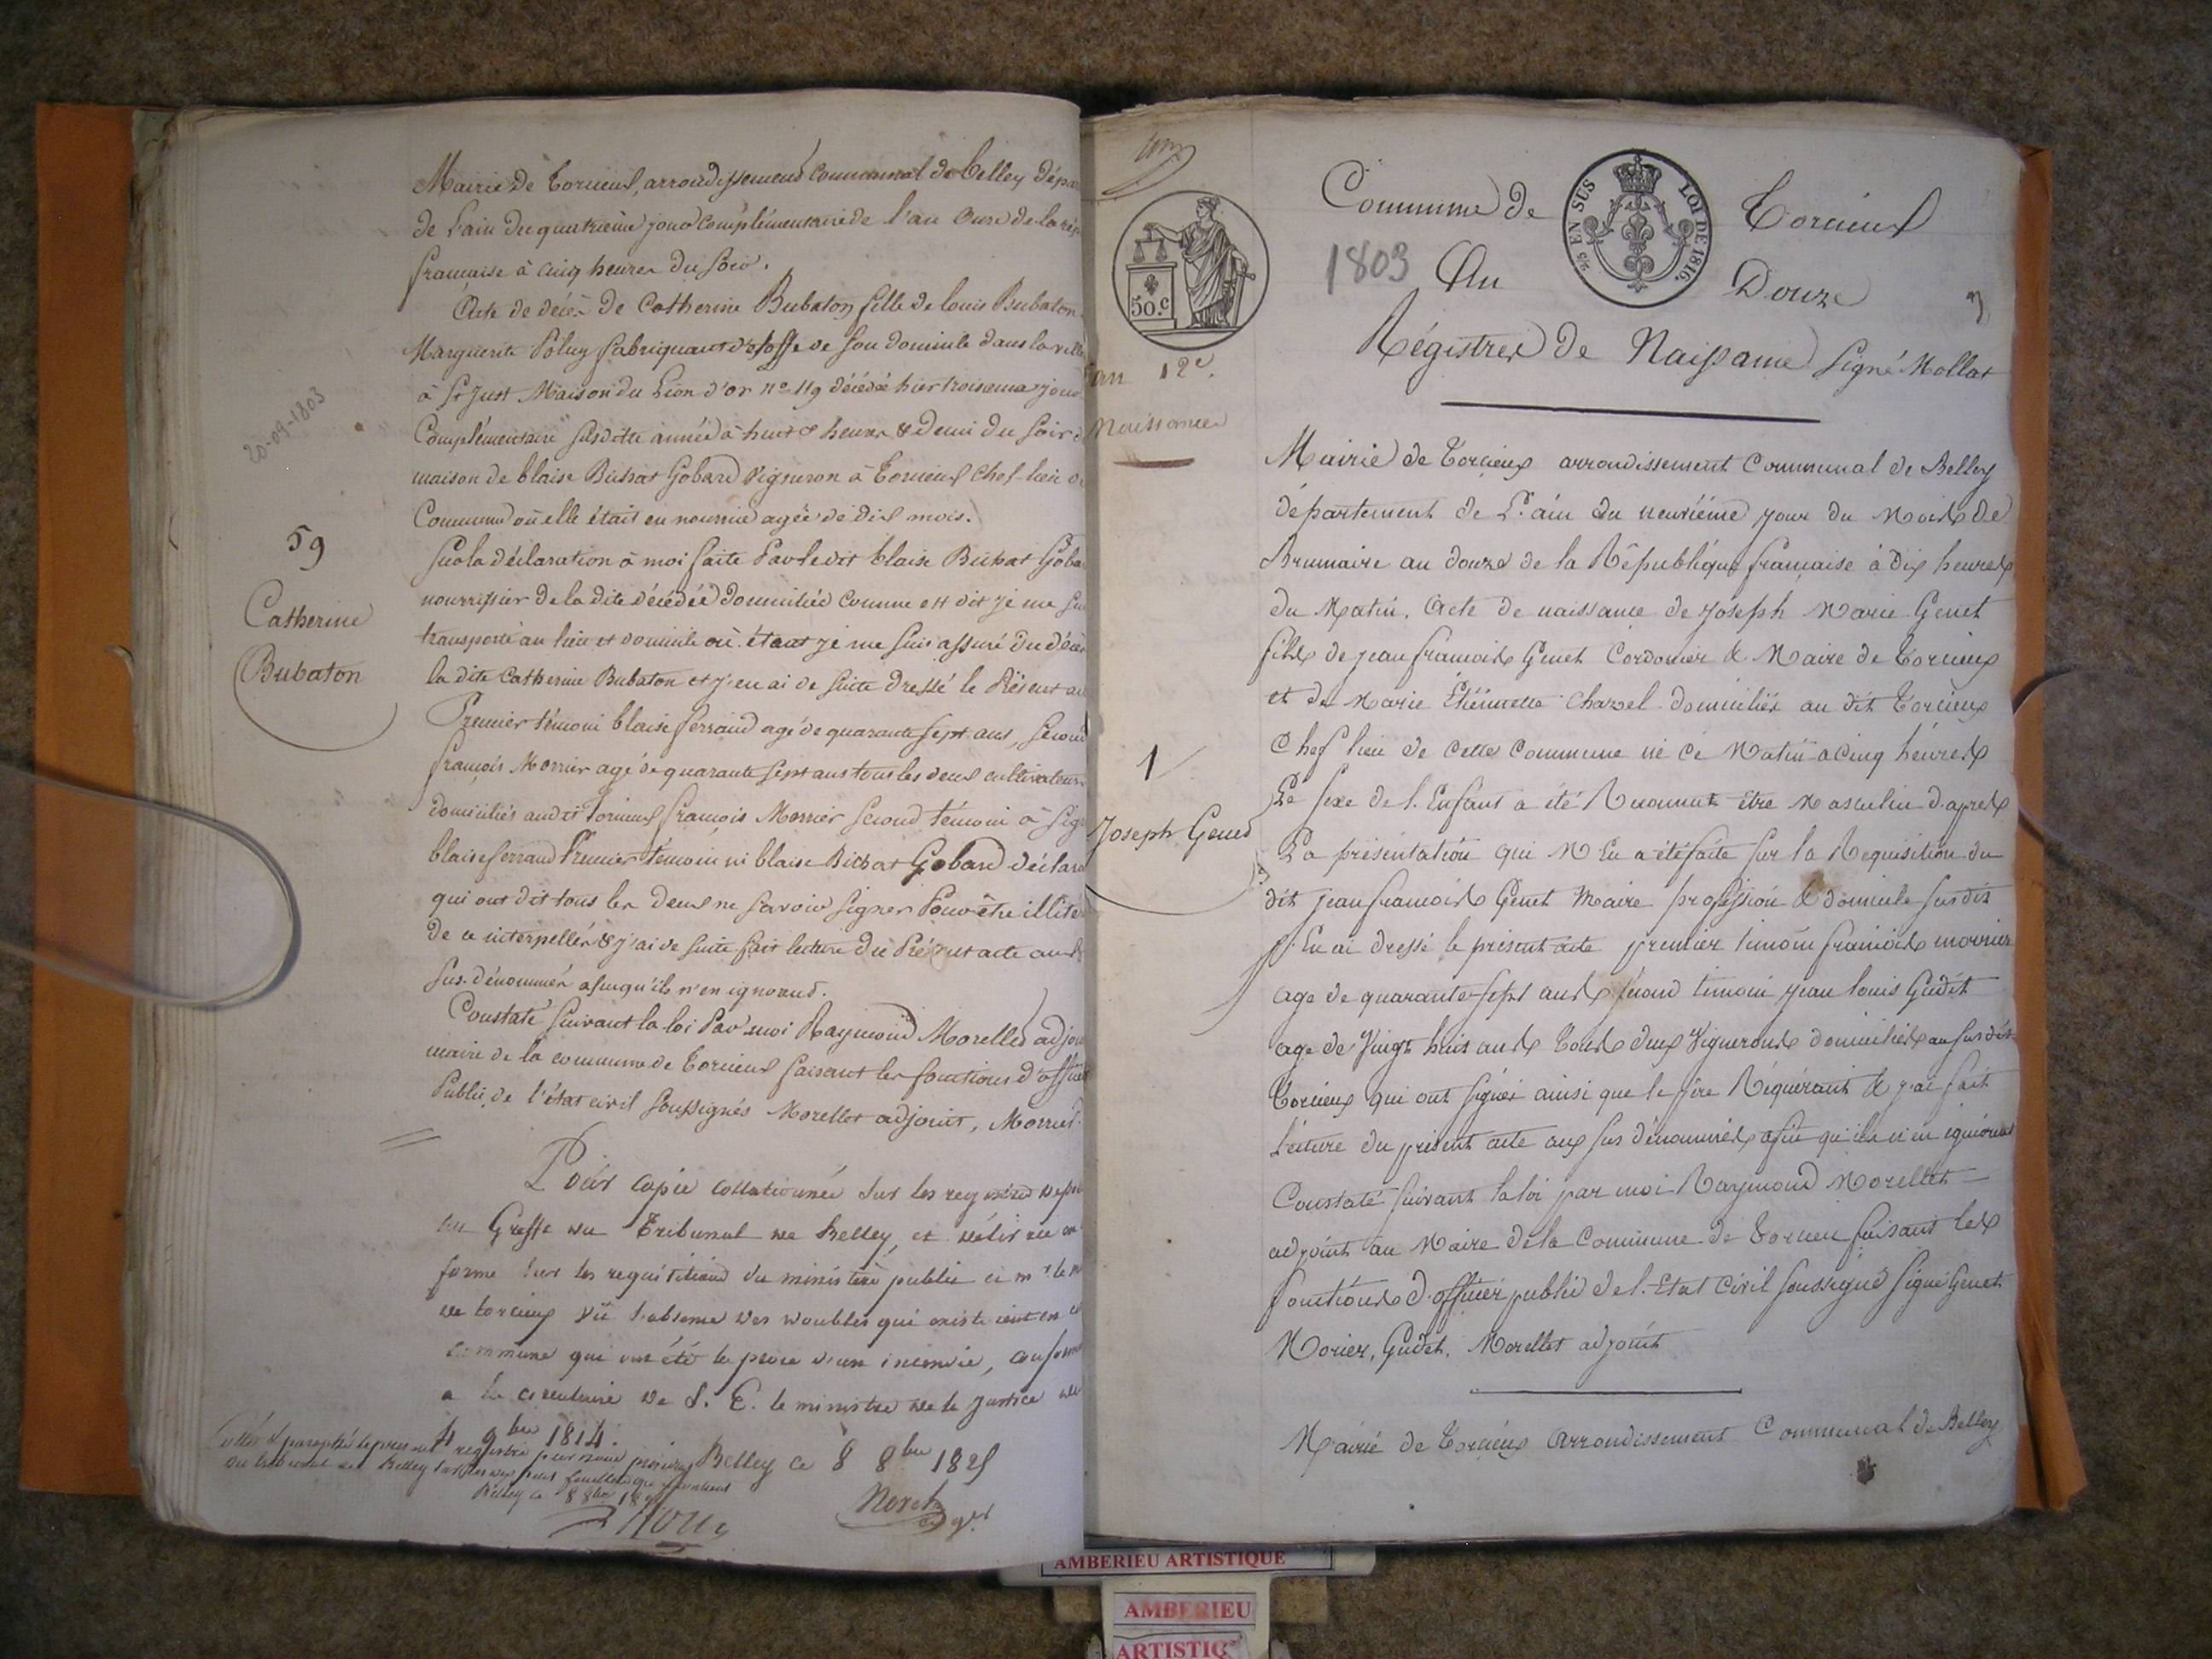 Mairie de Torcieux, arrondissement communal de belley dépar
de L'ain du quatrieme jour complémentaire de l'an Onze de la rép
française à cinq heures du soir.
Acte de décès de Catherine Bubaton fille de Louis Bubaton
Marguerite Poluy fabriquant d'etoffe de son domicile dans la ville
à St Just Maison du Lion d'or no 119 décédée hier troisieme jour
Complémentaire susditte année à huit heures & demi du soir
maison de blaise Bichat Gobard vigneron à Torcieux chef-lieu
Commune où elle était en nourrice agée de dix mois.
Sur la déclaration à moi faite Par ledit blaise Bichat Goba
nourrissier de la dite décédée domicilié comme est dit je me suis
transporté au lieu et domicile où étant je me suis assuré du décès
la dite Catherine Bubaton et j'en ai de suite dressé le Présent
Premier témoin blaise ferraud agé de quarante sept ans, second
françois Morrier agé de quarante sept ans tous les deux cultivateurs
domiciliés audit Torcieux françois Morrier second témoin à sig
blaise ferraud Premier témoin ni blaise Bichat Gobard déclara
qui ont dit tous les deux ne savoir signer Pour être illite
de ce interpellés & j'ai de suite fait lecture du Présent acte aux
sus-dénommés afin qu'ils n'en ignorent.
Constaté suivant la loi Par moi Raymond Morellet adjoi
maire de la commune de Torcieux faisant les fonctions d'officier
Public de l'état civil soussignés Morellet adjoint, Morrier
20-09-1803
59
Catherine
Bubaton
Pour copie collationnée sur les registres
au Greffe du Tribunal de Belley, et délivrée en
forme sur les requisitions du ministère public
de torcieux vû l'absence des doubles qui existoient en
commune qui ont été la proie d'un incendie, conform
a la circulaire de S. E. le ministre de la Justice
4 9bre 1814.
Belley ce 8 8bre 1825
Cotté & paraphé le present registre par nous
du tribunal de Belley
Belley ce 8 8bre
an 12e.
Naissances
50.c
5/10 EN SUS LOI DE 1816.
Commune de Torcieux
1803 An Douze
Régistres de Naissance signé Mollat
1
Joseph Genet
Mairie de Torcieux arrondissement Communal de Belley
département de L'ain du neuviéme jour du Mois de
Brumaire an douze de la République française à dix heures
du Matin. Acte de naissance de Joseph Marie Genet
fils de jean francois Genet Cordonier & Maire de Torcieux
et de Marie Etiénnette Charvel domiciliés au dit Torcieux
Chef lieu de cette Commune né ce Matin a cinq héures
Le sexe de l'Enfant a été Reconnut être Masculin d'aprés
La présentation qui M'En a été faite sur la Requisition du
dit jean francois Genet Maire profession & domicile susdit
J'En ai dressé le présent acte premier témoin francois morrier
age de quarante sept ans second témoin jean louis Gudet
age de Vingt huit ans tous deux Vignerons domiciliés au susdit
Torcieux qui ont signés ainsi que le pére Réquérant & j'ai fait
Lécture du présent acte aux sus dénommés afin qu'ils n'en ignorent
Constaté suivant la loi par moi Raymond Morellet
adjoint au Maire de la Commune de Torcieu faisant les
fonctions d'officier public de l'Etat Civil soussigné signé Genet
Morier, Gudet. Morellet adjoint
Mairie de Torcieux Arrondissement Communal de Belley
AMBERIEU ARTISTIQUE
AMBERIEU
ARTISTIQ